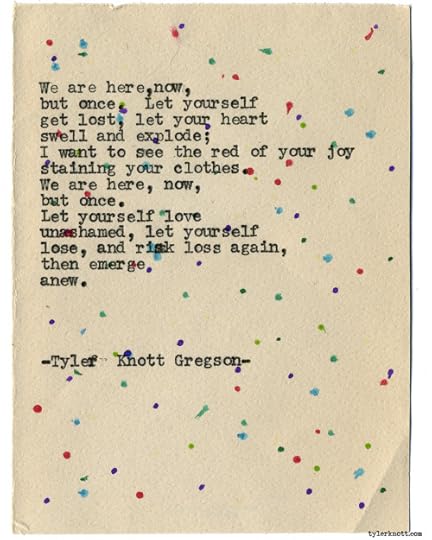 We are here,now,
but once.  Let yourself
get lost, let your heart
swell and explode;
I want to see the red of your joy
staining your clothes.
We are here, now,
but once.
Let yourself love
unashamed, let yourself
lose, and risk loss again,
then emerge
anew.
-Tyler  Knott Gregson-
tylerknott.com